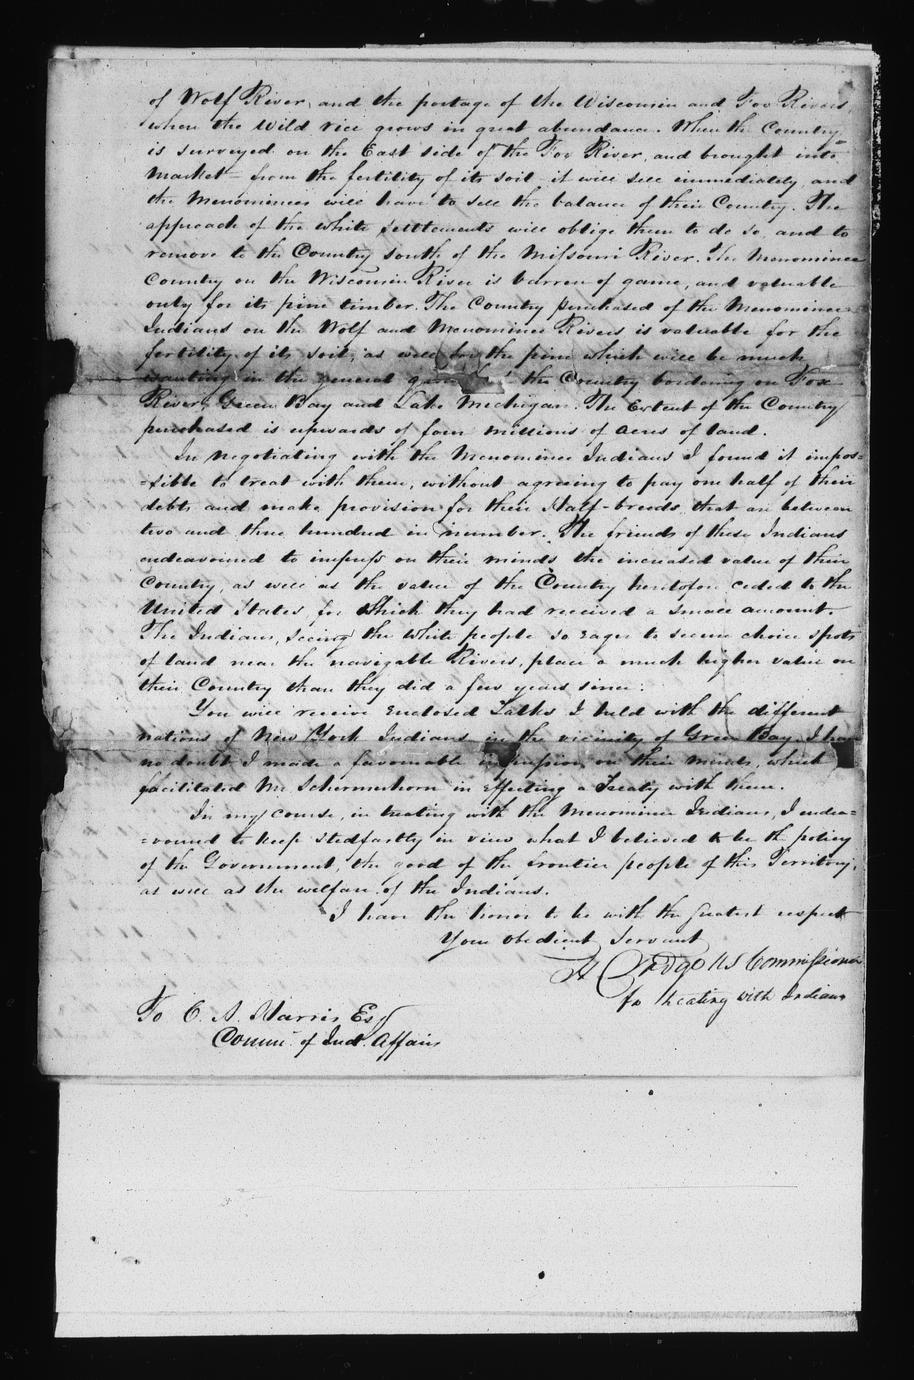 of Wolf River, and the portage of the Wisconsin and Fox Rivers
when the Wild rice grows in great abundance. When the Country
is surveyed on the East side of the Fox River, and brought into
Market - from the fertility of its soil - it will sell immediately, and
the Menominees will have to sell the balance of their Country. The
approach of the white settlements will oblige them to do so, and to
remove to the Country south of the Missouri River. The Menominee
Country on the Wisconsin River is barren of game, and valuable
only for its pine timber. The Country purchased of the Menominee
Indians on the Wolf and Menominee Rivers is valuable for the
fertility of its soil, as well for the pine which will be much
wanting in the general the Country bordering on Fox
River, Green Bay and Lake Michigan. The Extent of the Country
purchased is upwards of four millions of acres of land.
In negotiating with the Menominee Indians I found it impos=
=sible to treat with them, without agreeing to pay one half of their
debts and make provision for their Half-breeds that are between
two and three hundred in number. The friends of these Indians
endeavoured to impress on their minds the increased value of their
Country, as well as the value of the Country heretofore ceded to the
United States for which they had received a small amount.
The Indians, seeing the white people so eager to secure choice spots
of land near the navigable Rivers, place a much higher value on
their Country than they did a few years since.
You will receive enclosed Talks I held with the different
nations of New York Indians in the vicinity of Green Bay. I have
no doubt I made a favourable impression, on their minds, which
facilitated Mr Schermerhorn in effecting a Treaty with them.
In my course, in treating with the Menominee Indians, I endea=
=voured to keep stedfastly in view what I believed to be the policy
of the Government, the good of the frontier people of this Territory,
as well as the welfare of the Indians.
I have the honor to be with the greatest respect
Your obedient Servant
H Dodge US Commissioner
for treating with Indians
To C. A. Harris Esq
Comm. of Ind. Affairs